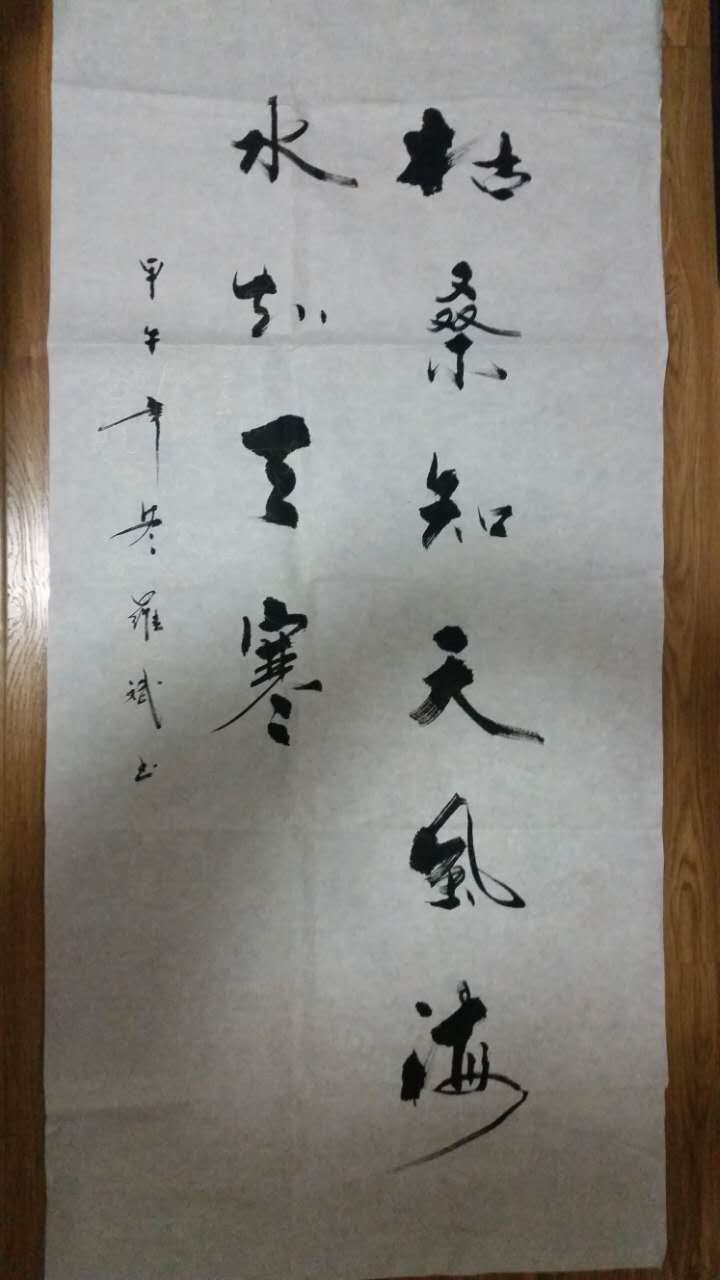 枯桑知天風海
水知天寒
甲午年冬羅斌书